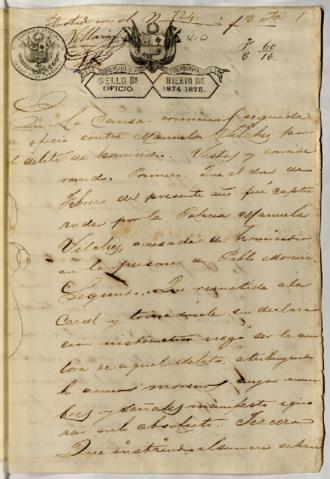 SELLO DE OFICIO.
BIENIO DE 1874-1875.
60
16
En la causa criminal seguida
de oficio contra Manuela Vilchez por
el delito de homicidio. Vistos y conside
rando. Primero. Que el dos de
Febrero del presente año fué captu
rada por la Policia Manuela
Vilchez, acusada de homicidio
en la persona de Pablo
Segundo. Que remitida a la
Carcel y tomádosele su declara
cion instructiva negó ser la au
tora de aquel delito, atribuyendo
lo a unos morenos cuyos nom
bres y señales manifestó igno
rar en lo absoluto. Tercero
Que instruido el sumario se han